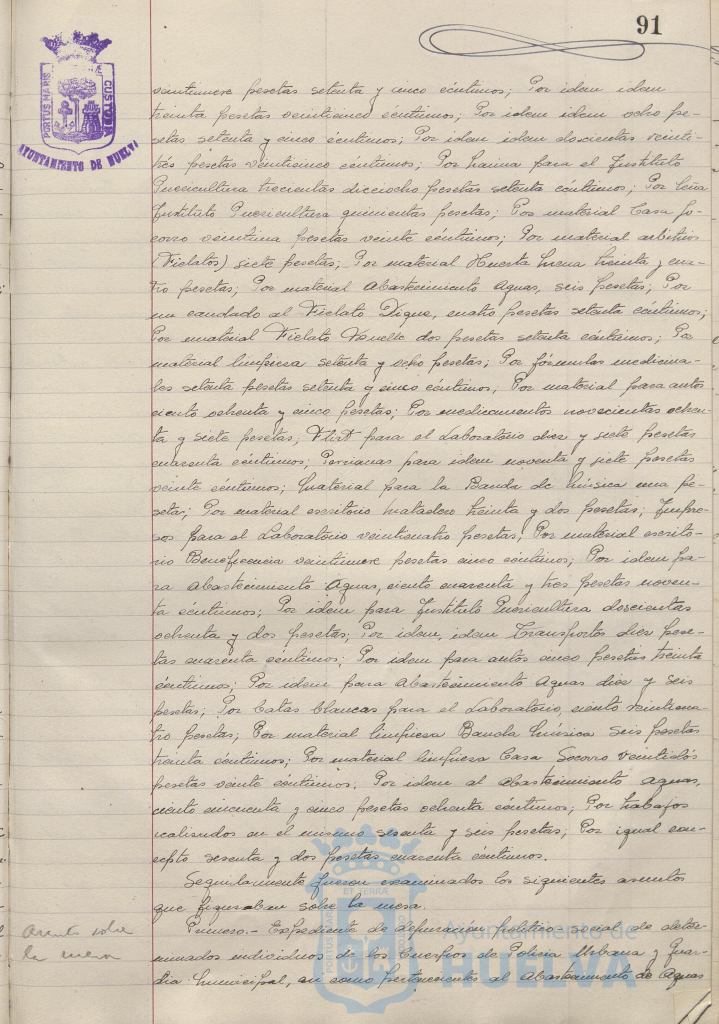 91
PORTUS MARIS
CUSTODIA
AYUNTAMIENTO DE HUELVA
veintinueve pesetas setenta y cinco céntimos; Por idem idem
treinta pesetas veinticinco céntimos; Por idem idem ocho pe-
setas setenta y cinco céntimos; Por idem idem doscientas veinti-
trés pesetas veinticinco céntimos; Por harina para el Instituto
Puericultura trecientas dieciocho pesetas setenta céntimos; Por leña
Instituto Puericultura quinientas pesetas; Por material Casa So-
corro veintiuna pesetas veinte céntimos; Por material arbitrios
(Fielatos) siete pesetas; Por material Huerta Mena treinta y cua-
tro pesetas; Por material Abastecimiento Aguas, seis pesetas; Por
un candado al Fielato Dique, cuatro pesetas setenta céntimos;
Por material Fielato Muelle dos pesetas setenta céntimos; Por
material limpieza setenta y ocho pesetas; Por fórmulas medicina-
les setenta pesetas setenta y cinco céntimos; Por material para autos
ciento ochenta y cinco pesetas; Por medicamentos novecientas ochen-
ta y siete pesetas; Flit para el Laboratorio diez y siete pesetas
cuarenta céntimos; Persianas para idem noventa y siete pesetas
veinte céntimos; Material para la Banda de Música una pe-
seta; Por material escritorio matadero treinta y dos pesetas; Impre-
sos para el Laboratorio veinticuatro pesetas; Por material escrito-
rio Beneficencia veintinueve pesetas cinco céntimos; Por idem pa-
ra Abastecimiento Aguas, ciento cuarenta y tres pesetas noven-
ta céntimos; Por idem para Instituto Puericultura doscientas
ochenta y dos pesetas; Por idem, idem Transportes diez pese-
tas cuarenta céntimos; Por idem para autos cinco pesetas treinta
céntimos; Por idem para Abastecimiento Aguas diez y seis
pesetas; Por batas blancas para el Laboratorio, ciento veinticua-
tro pesetas; Por material limpieza Banda Música seis pesetas
treinta céntimos; Por material limpieza Casa Socorro veintidós
pesetas veinte céntimos; Por idem al Abastecimiento aguas,
ciento cincuenta y cinco pesetas ochenta céntimos; Por trabajos
realizados en el mismo sesenta y seis pesetas; Por igual con-
cepto sesenta y dos pesetas cuarenta céntimos.
Seguidamente fueron examinados los siguientes asuntos
que figuraban sobre la mesa.
Asuntos sobre
la mesa
Primero.- Expediente de depuración político-social de deter-
minados individuos de los Cuerpos de Policía Urbana y Guar-
dia Municipal, asi como pertenecientes al Abastecimiento de Aguas
Ayuntamiento de
HUELVA